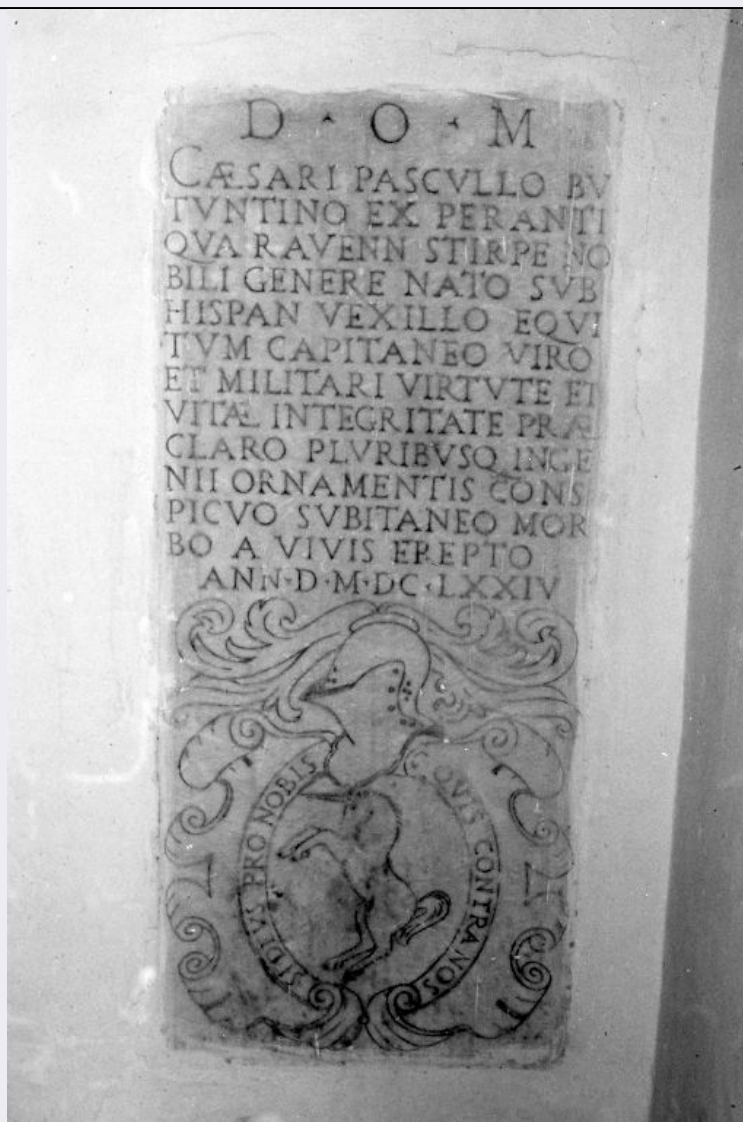 D · O · M
CÆSARI PASCVLLO BV
TVNTINO EX PERANTI
QVA RAVENN STIRPE NO
BILI GENERE NATO SVB
HISPAN VEXILLO EQVI
TVM CAPITANEO VIRO
ET MILITARI VIRTVTE ET
VITÆ INTEGRITATE PRÆ
CLARO PLVRIBVSQ INGE
NII ORNAMENTIS CONS
PICVO SVBITANEO MOR
BO A VIVIS EREPTO
ANN·D·M·DC·LXXIV
SI DIVS PRO NOBIS
QVIS CONTRA NOS